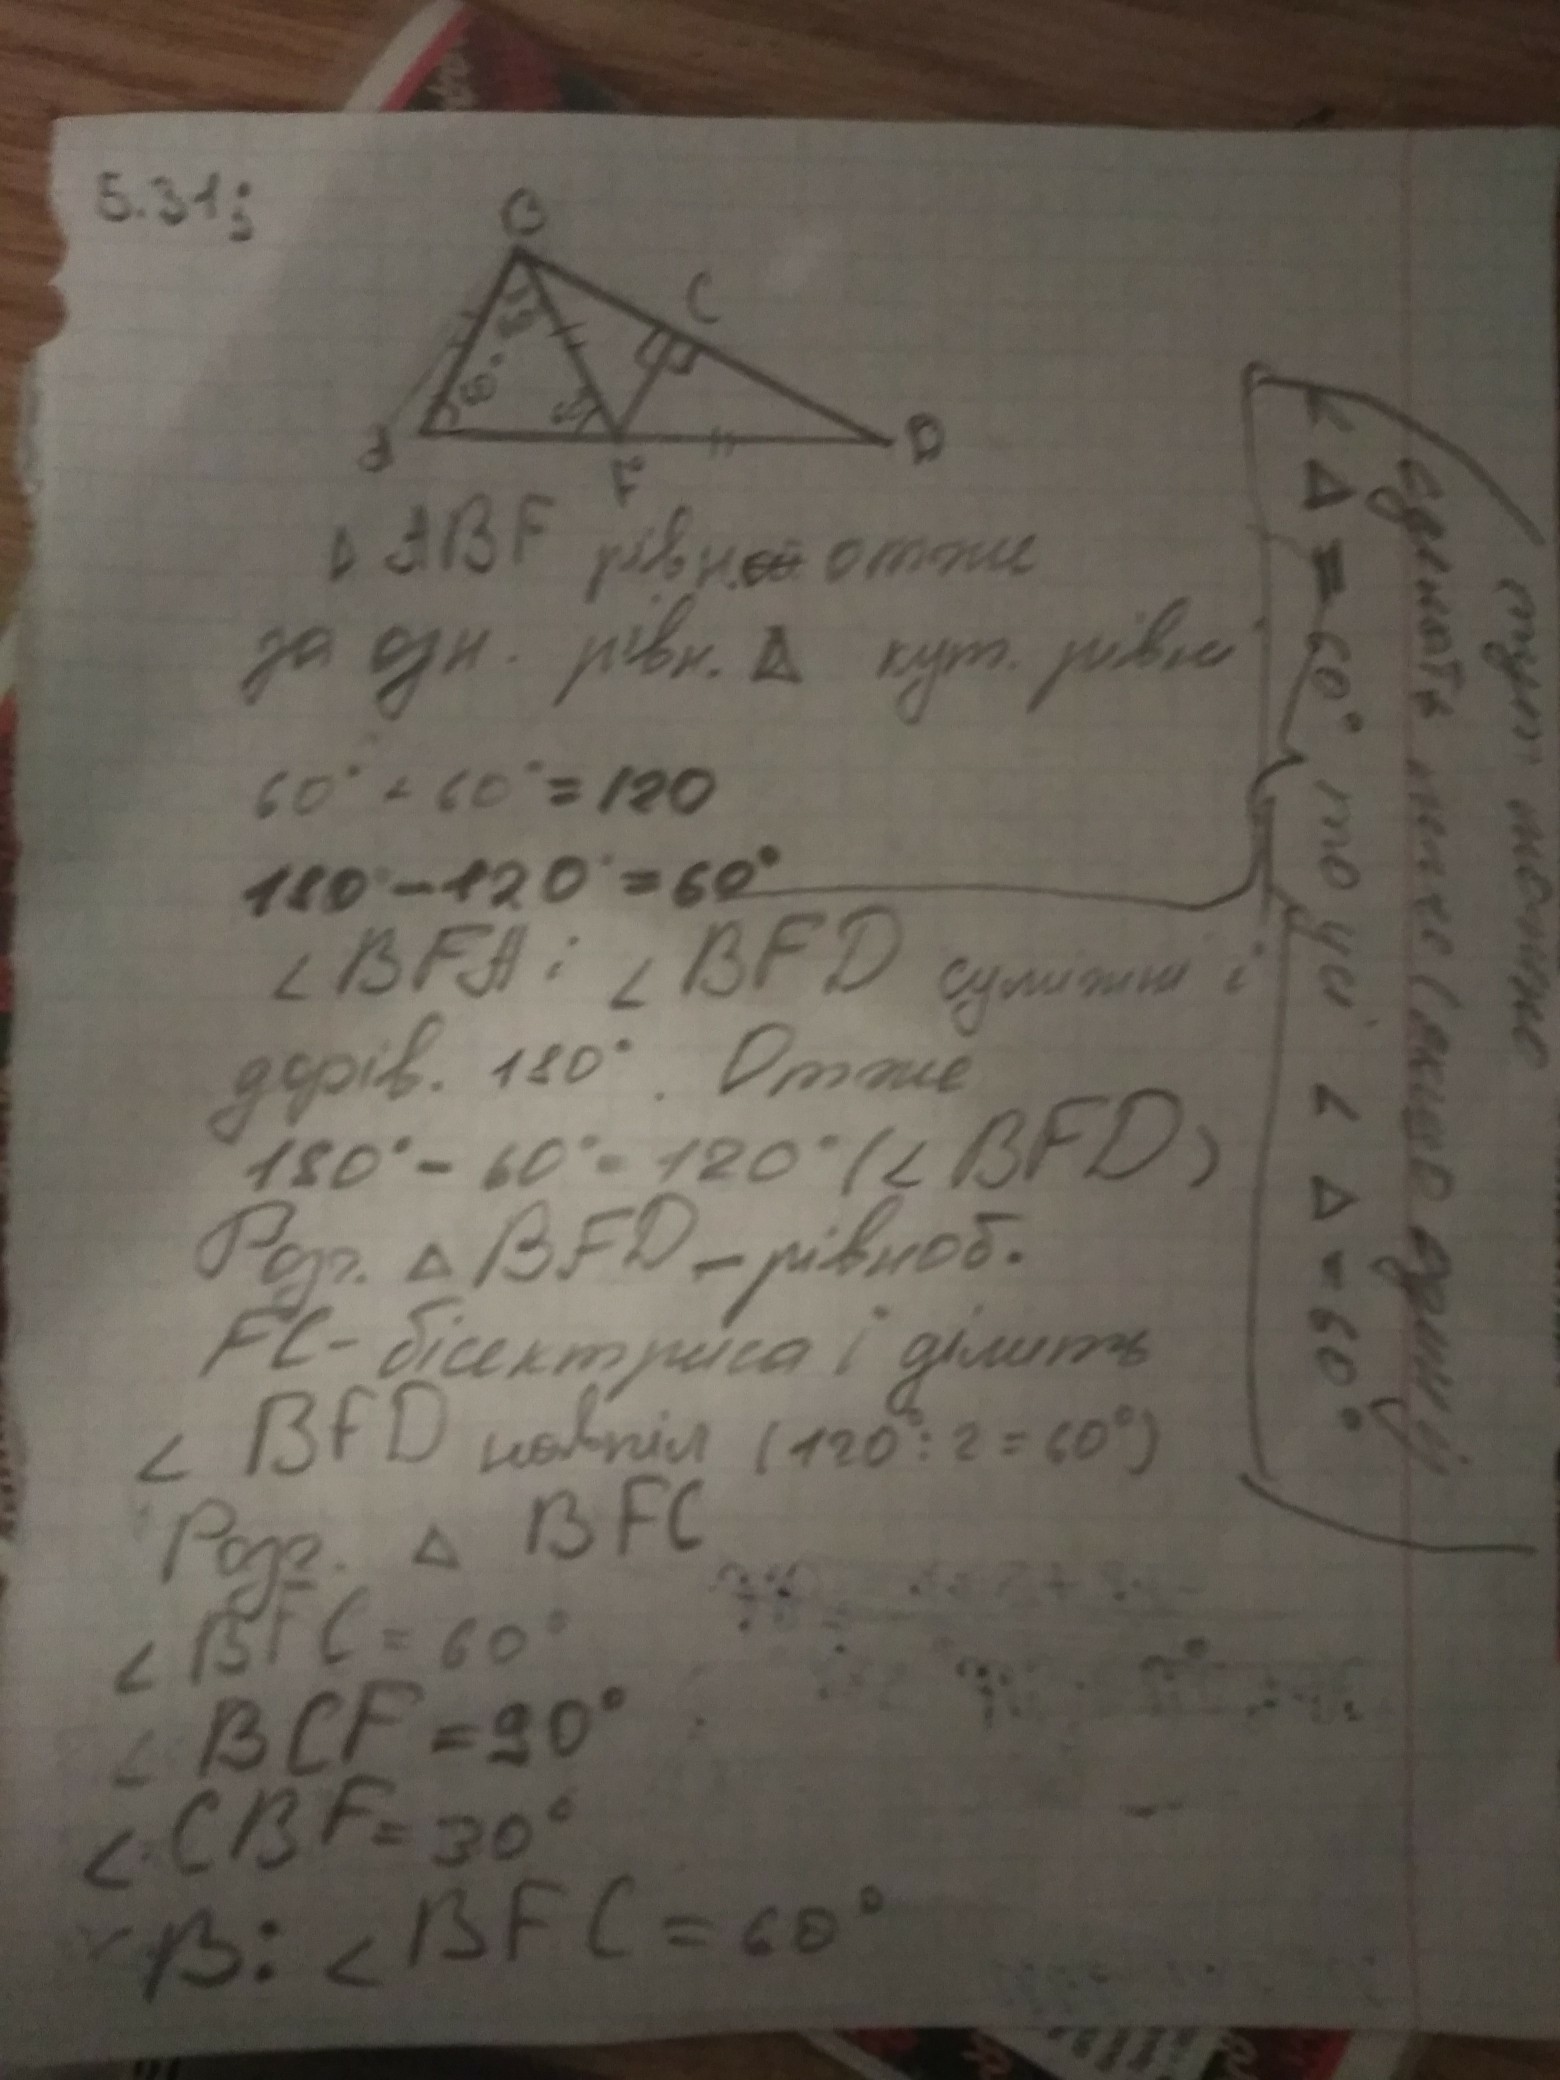 5.31;
B
C
60°
A
F
D
Δ ABF рівн. отже
за озн. рівн. Δ кут. рівні
60° + 60° = 120
180° - 120° = 60°
∠BFA і ∠BFD суміжні і
дорів. 180°. Отже
180° - 60° = 120° (∠BFD)
Розг. Δ BFD - рівноб.
FC - бісектриса і ділить
∠ BFD навпіл (120° : 2 = 60°)
Розг. Δ BFC
∠ BFC = 60°
∠ BCF = 90°
∠ CBF = 30°
В: ∠ BFC = 60°
тут можно
сделать легче (якщо один й
∠ Δ = 60° то усі ∠ Δ - 60°